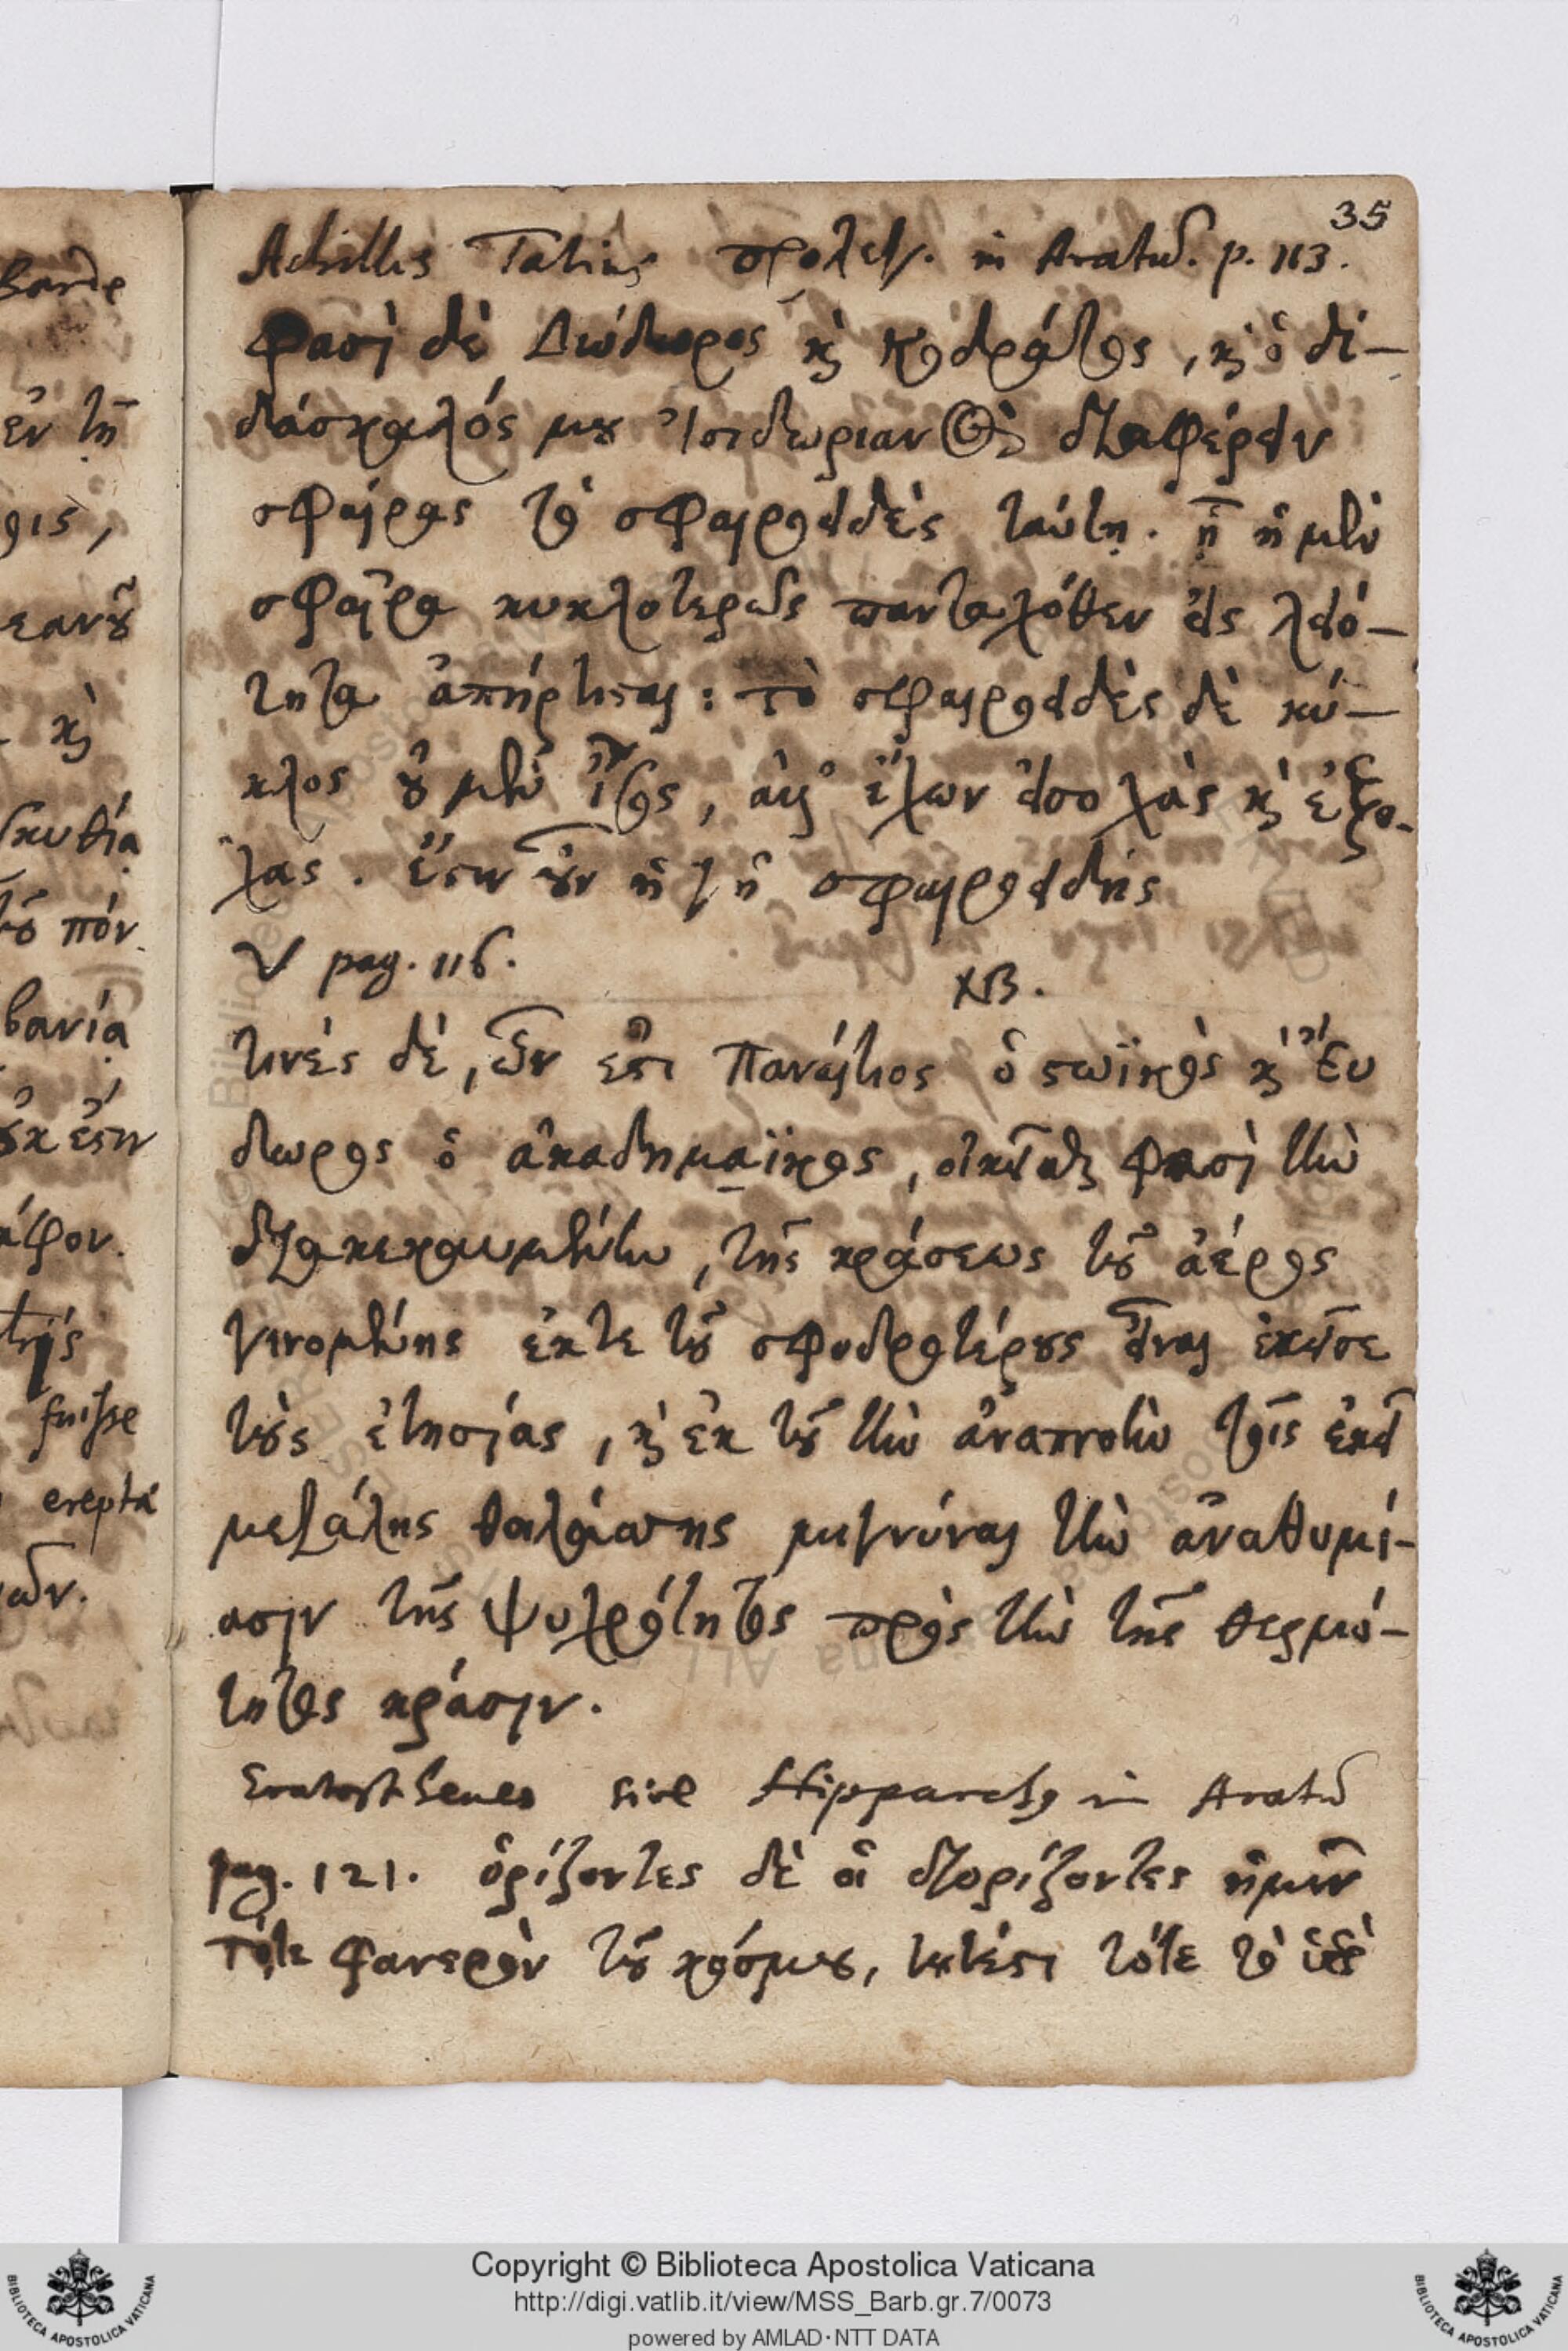 35
Achilles Tatius προλεγ. in Aratũ. p. 113.
Φασὶ δὲ Διόδωρος κὶ Κοδράτος, κὶ ὁ δι-
δάσκαλός μου Ἰσιδωριανὸς διαφέρειν
σφαίρας τὸ σφαιροειδὲς ταύτῃ. ᾗ ἡ μὲν
σφαῖρα κυκλοτερῶς πανταχόθεν εἰς λειό-
τητα ἀπήρτισται: τὸ σφαιροειδὲς δὲ κύ-
κλος οὐ μὲν, ἔχων εἰσοχὰς κὶ ἐξο-
χας. ἔστιν οὖν ἡ γῆ σφαιροειδής
V pag. 116. NB.
τινές δὲ, ὧν ἐστι Παναίτιος ὁ στωϊκὸς κὶ Εὔ
δωρος ὁ ἀκαδημαϊκος, οἰκεῖσθαι φασὶ τὴν
διακεκαυμένην, τῆς κράσεως τοῦ ἀέρος
γινομένης ἐκτε τοῦ σφοδροτέρους εἶναι ἐκεῖσε
τοὺς ἐτησίας, κὶ ἐκ τοῦ τὴν ἀναπνοὴν τῆς ἐκεῖ
μεγάλης θαλάσσης μιγνύναι τὴν ἀναθυμί-
ασιν τῆς ψυχρότητος πρὸς τὴν τῆς θερμό-
τητος κράσιν.
Eratosthenes sive Hipparchus in Aratũ
pag. 121. ὁρίζοντες δὲ οἱ διορίζοντες ἡμῖν
τότε φανερὸν τοῦ κόσμου, τουτέστι τότε τὸ ὑπὲρ
Copyright © Biblioteca Apostolica Vaticana
http://digi.vatlib.it/view/MSS_Barb.gr.7/0073
powered by AMLAD·NTT DATA
BIBLIOTECA APOSTOLICA VATICANA
BIBLIOTECA APOSTOLICA VATICANA